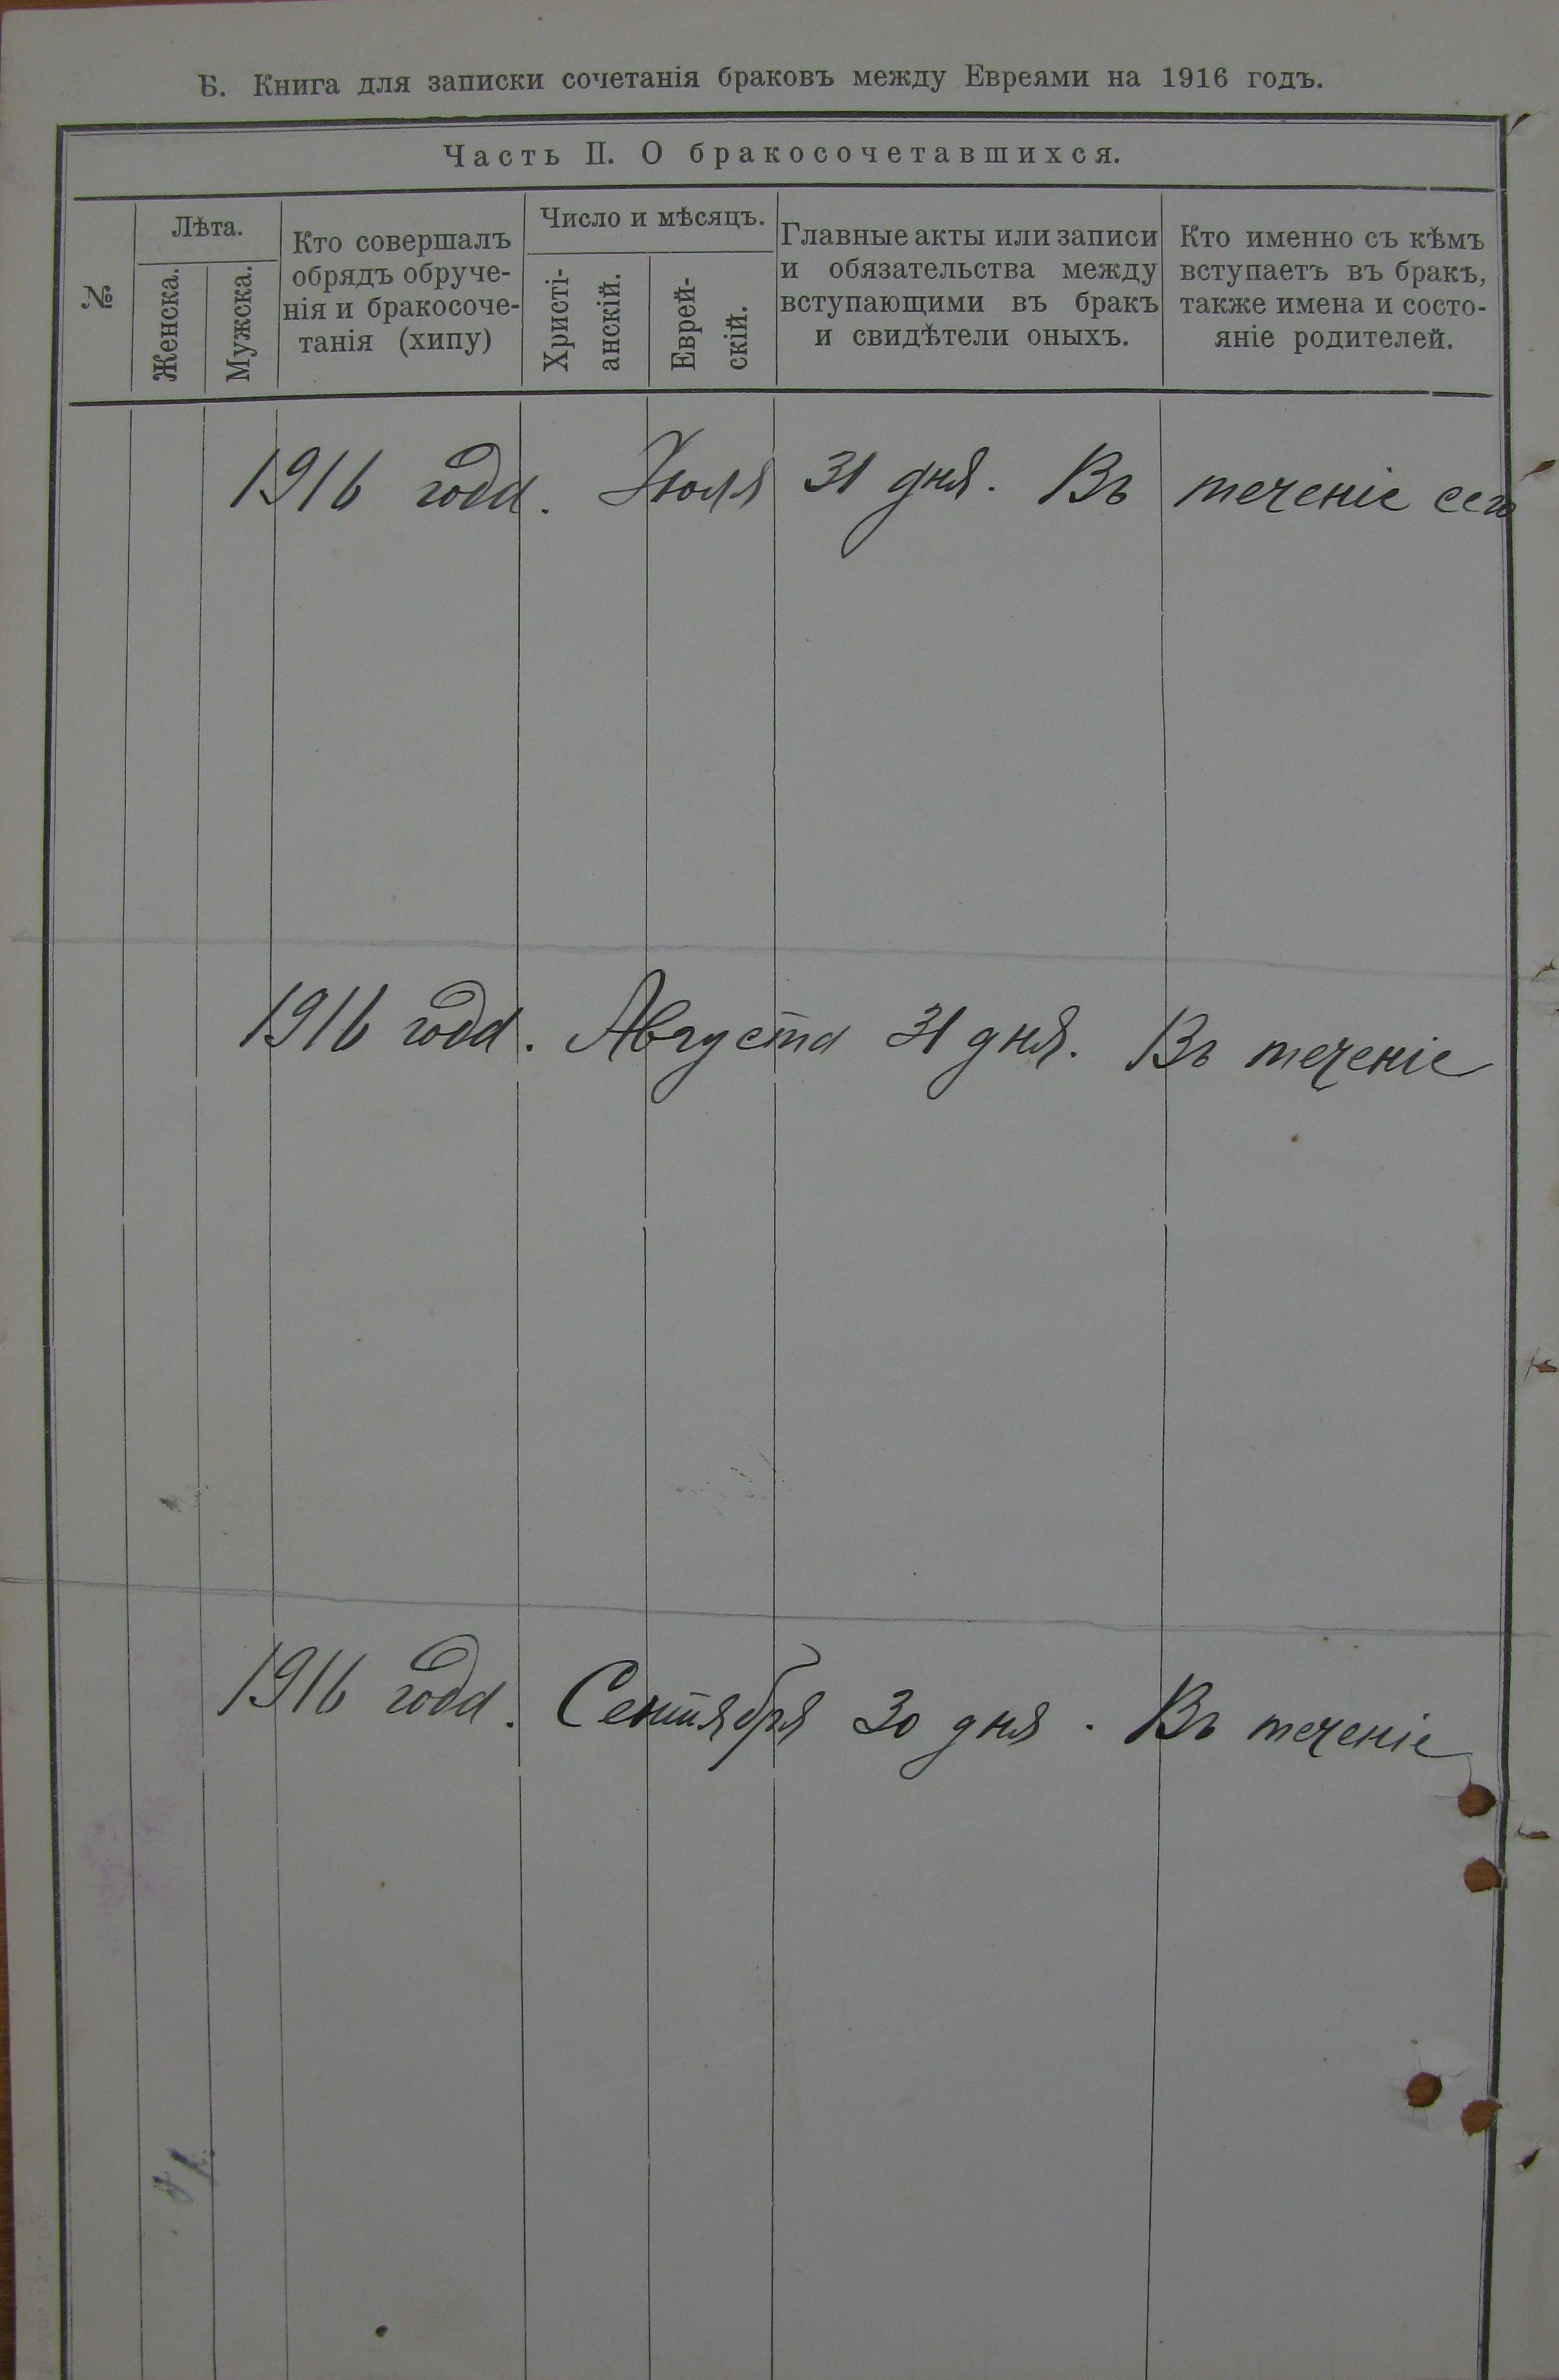 Б. Книга для записки сочетанія браковъ между Евреями на 1916 годъ.
Часть II. О бракосочетавшихся.
№
Лѣта.
Женска.
Мужска.
Кто совершалъ
обрядъ обруче-
нія и бракосоче-
танія (хипу)
Число и мѣсяцъ.
Христі-
анскій.
Еврей-
скій.
Главные акты или записи
и обязательства между
вступающими въ бракъ
и свидѣтели оныхъ.
Кто именно съ кѣмъ
вступаетъ въ бракъ,
также имена и состо-
яніе родителей.
1916 года. Іюля 31 дня. Въ теченіе сего
1916 года. Августа 31 дня. Въ теченіе
1916 года. Сентября 30 дня. Въ теченіе